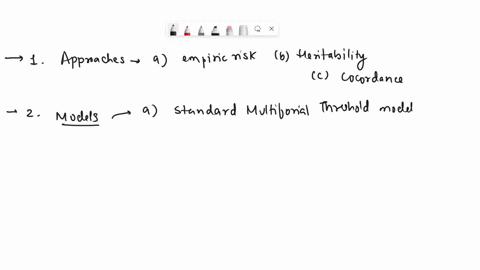 → 1. Approaches → a) empiric risk (b) Heritability
(c) Cocordance
→ 2. Models → a) Standard Multiforial Thrhold model